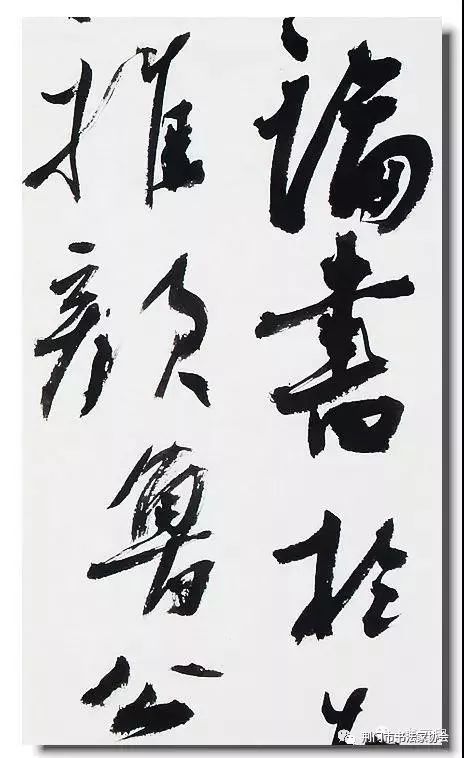 論書於
推顏魯公
荆门市书法家协会